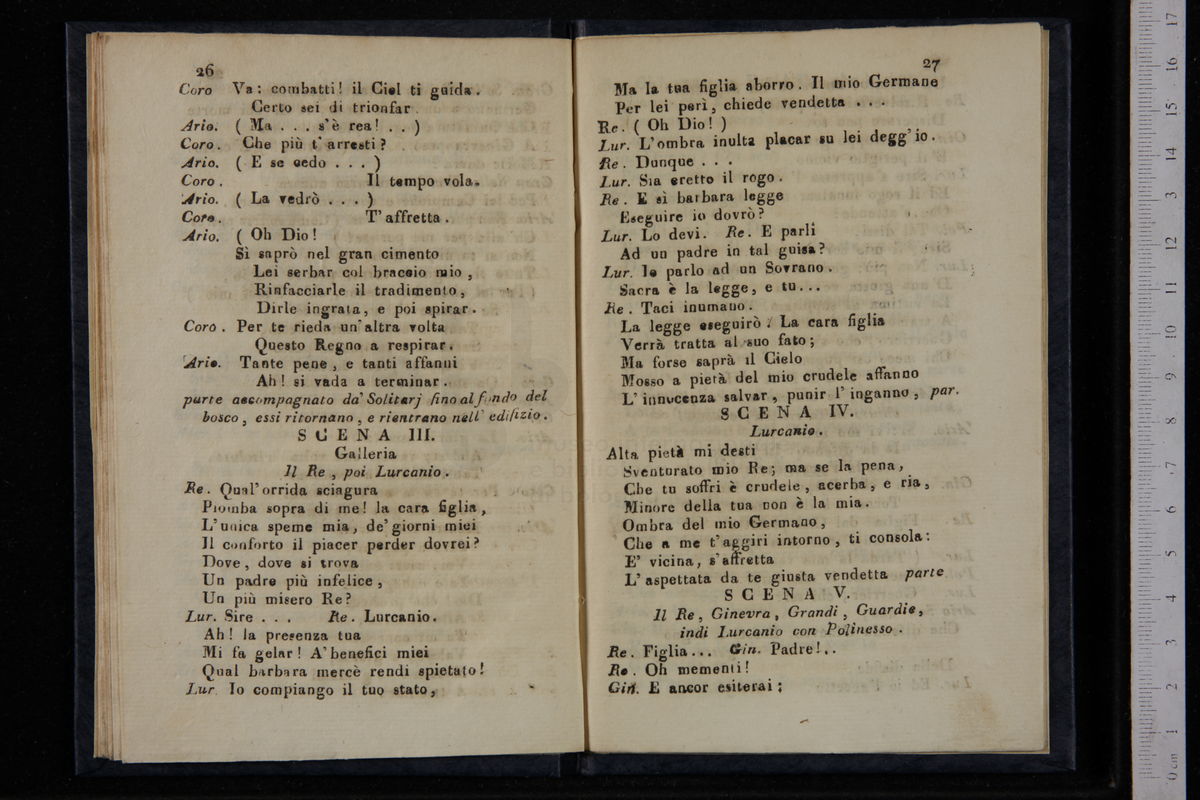 26
Coro Va: combatti! il Ciel ti guida.
Certo sei di trionfar.
Ario. ( Ma . . . s'è rea! . . )
Coro. Che più t'arresti?
Ario. ( E se cedo . . . )
Coro. Il tempo vola.
Ario. ( La vedrò . . . )
Coro. T'affretta.
Ario. ( Oh Dio!
Sì saprò nel gran cimento
Lei serbar col braccio mio,
Rinfacciarle il tradimento,
Dirle ingrata, e poi spirar.
Coro. Per te rieda un'altra volta
Questo Regno a respirar.
Ario. Tante pene, e tanti affanni
Ah! si vada a terminar.
parte accompagnato da' Solitarj fino al fondo del
bosco, essi ritornano, e rientrano nell' edifizio.
SCENA III.
Galleria
Il Re, poi Lurcanio.
Re. Qual'orrida sciagura
Piomba sopra di me! la cara figlia,
L'unica speme mia, de'giorni miei
Il conforto il piacer perder dovrei?
Dove, dove si trova
Un padre più infelice,
Un più misero Re?
Lur. Sire . . . Re. Lurcanio.
Ah! la presenza tua
Mi fa gelar! A'benefici miei
Qual barbara mercè rendi spietato!
Lur. Io compiango il tuo stato,
27
Ma la tua figlia aborro. Il mio Germane
Per lei perì, chiede vendetta . . .
Re. ( Oh Dio! )
Lur. L'ombra inulta placar su lei degg'io.
Re. Dunque . . .
Lur. Sia eretto il rogo.
Re. E sì barbara legge
Eseguire io dovrò?
Lur. Lo devi. Re. E parli
Ad un padre in tal guisa?
Lur. Io parlo ad un Sovrano.
Sacra è la legge, e tu...
Re. Taci inumano.
La legge eseguirò: La cara figlia
Verrà tratta al suo fato;
Ma forse saprà il Cielo
Mosso a pietà del mio crudele affanno
L'innocenza salvar, punir l'inganno, par.
SCENA IV.
Lurcanio.
Alta pietà mi desti
Sventurato mio Re; ma se la pena,
Che tu soffri è crudele, acerba, e ria,
Minore della tua non è la mia.
Ombra del mio Germano,
Che a me t'aggiri intorno, ti consola:
E' vicina, s'affretta
L'aspettata da te giusta vendetta parte
SCENA V.
Il Re, Ginevra, Grandi, Guardie,
indi Lurcanio con Polinesso.
Re. Figlia... Gin. Padre!..
Re. Oh mementi!
Gin. E ancor esiterai;
0 cm 1 2 3 4 5 6 7 8 9 10 11 12 13 14 15 16 17